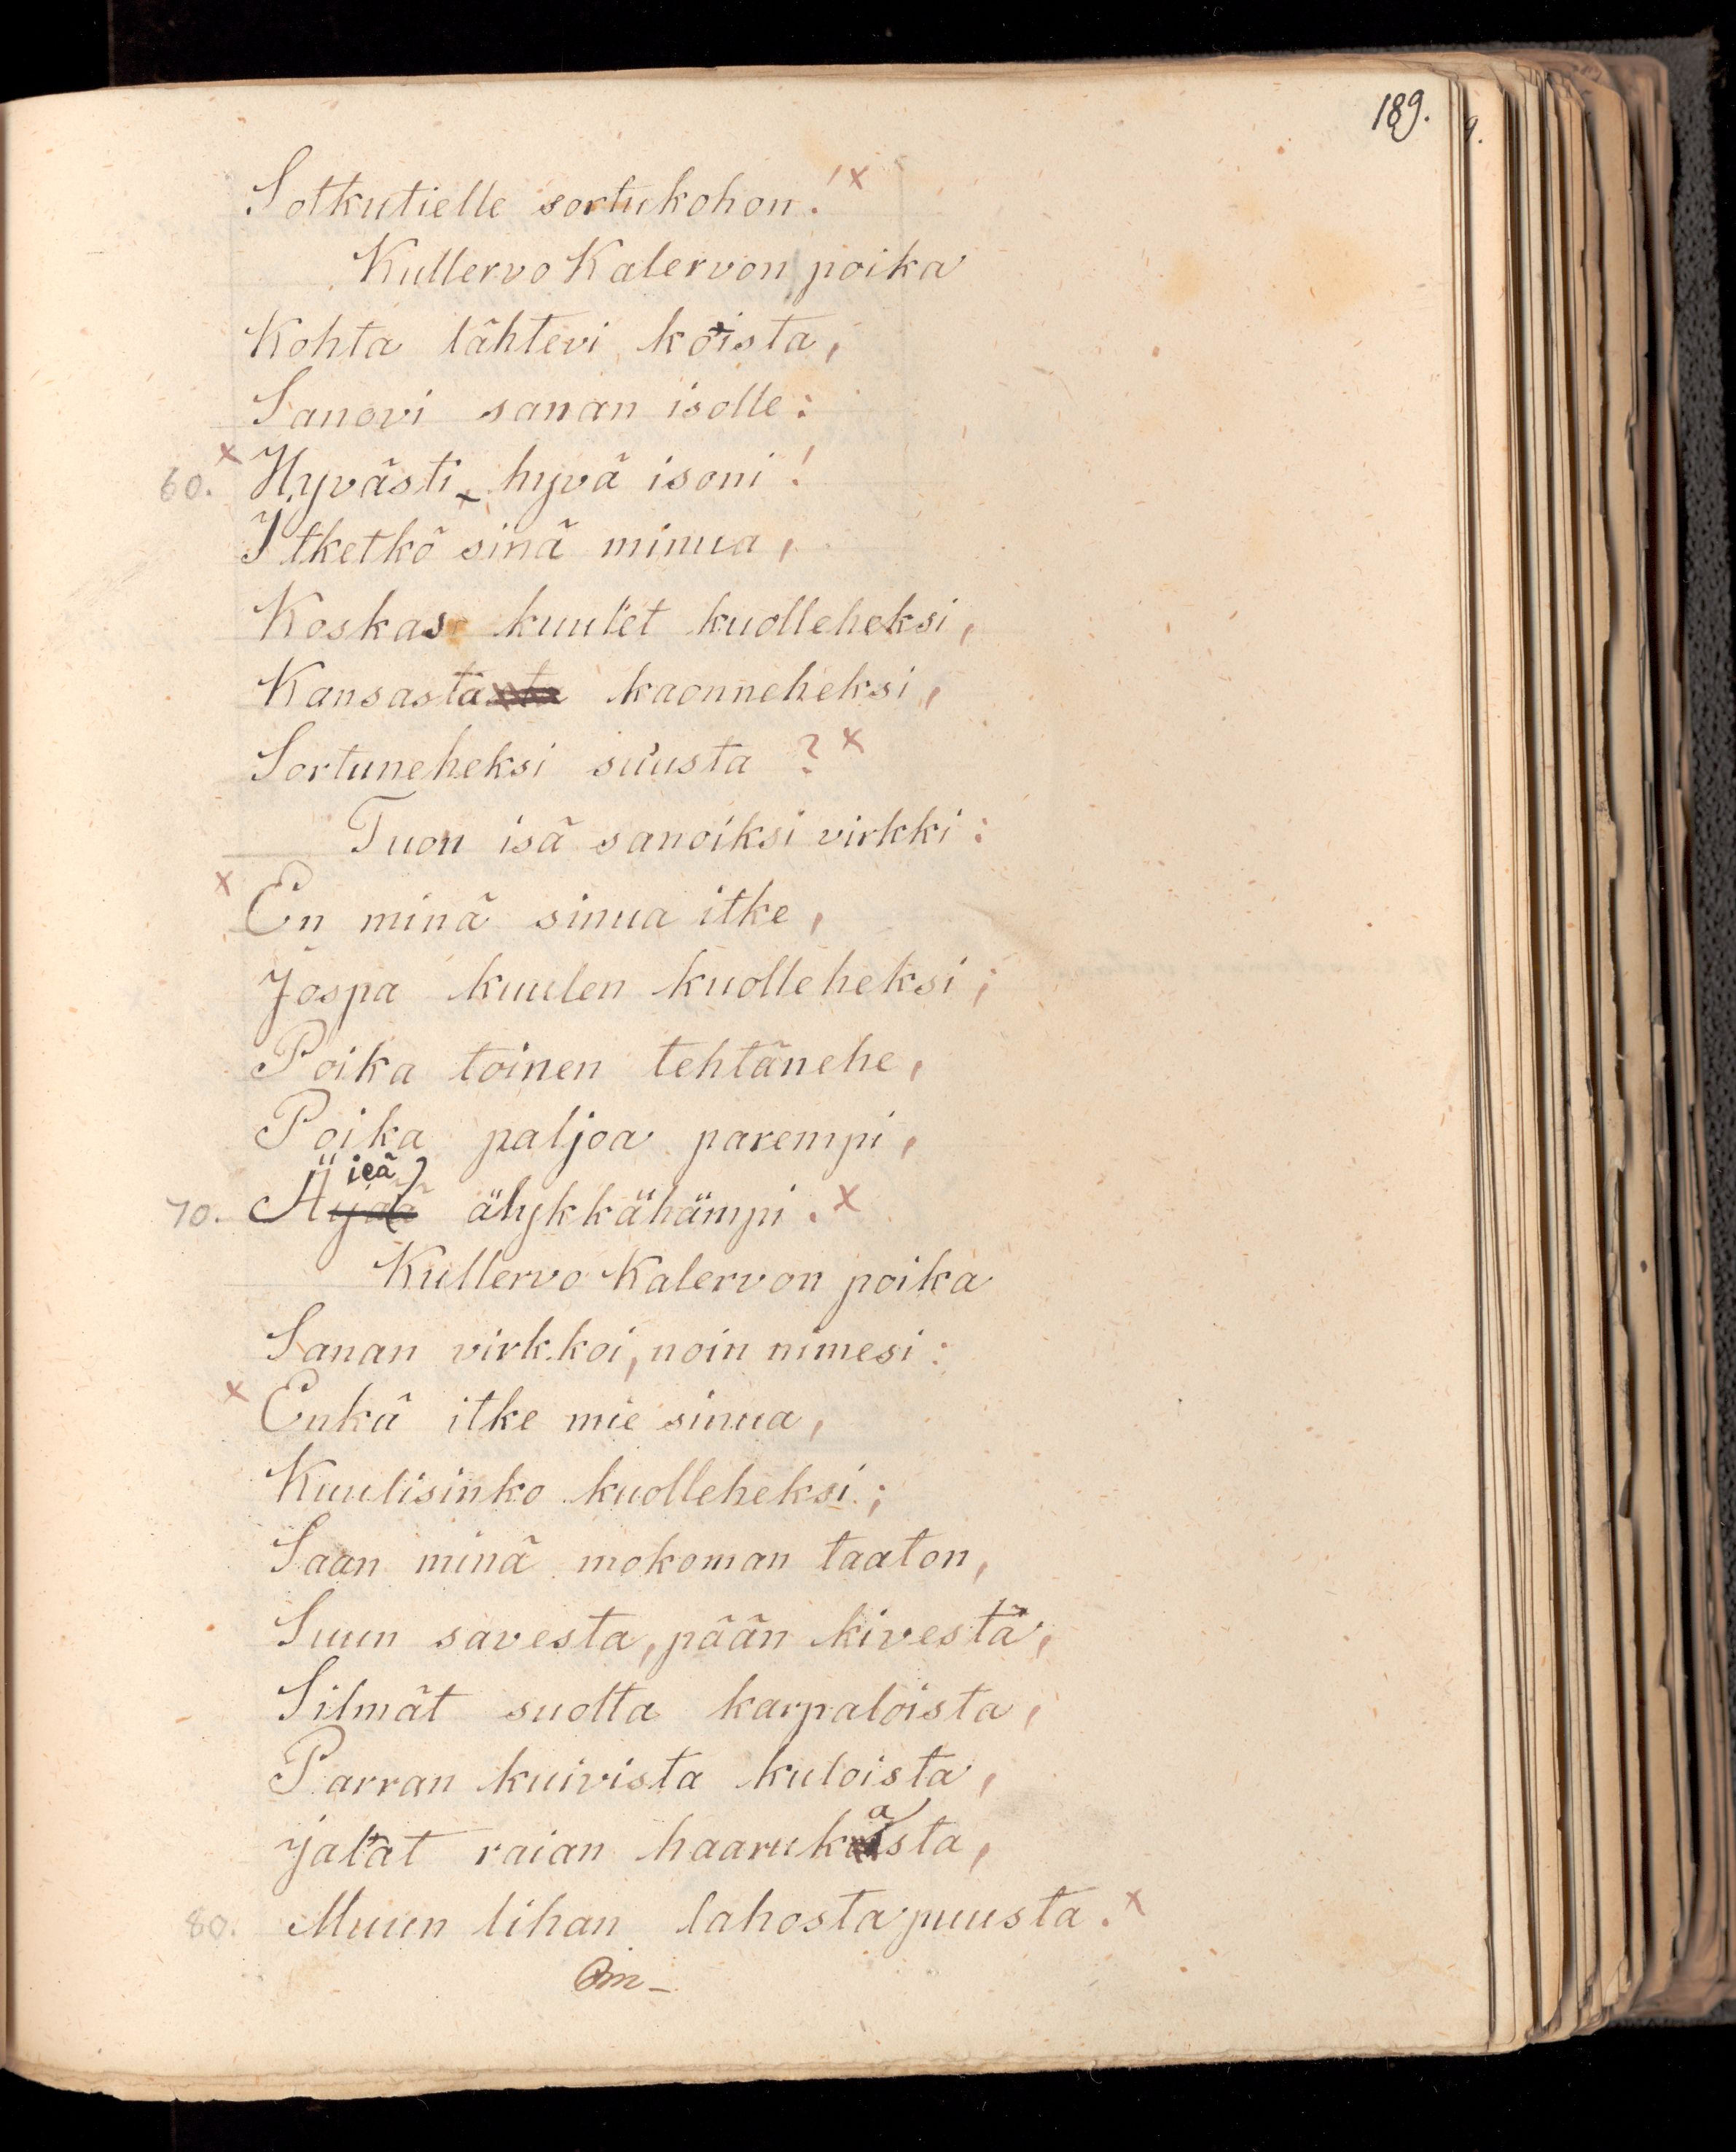 189.
Sotkutielle sortukohon! x
Kullervo Kalervon poika
Kohta lähtevi koista,
Sanovi sanan isolle:
60. x Hyvästi x hyvä isoni!
Itketkö sinä minua,
Koskas kuulet kuolleheksi,
Kansasta kaonneheksi,
Sortuneheksi su'usta? x
Tuon isä sanoiksi virkki:
x En minä sinua itke,
Jospa kuulen kuolleheksi;
Poika toinen tehtänehe,
Poika paljoa parempi,
70. Äijeä älykkähämpi. x
Kullervo Kalervon poika
Sanan virkkoi, noin nimesi:
x Enkä itke mie sinua,
Kuulisinko kuolleheksi;
Saan minä mokoman taaton,
Suun savesta, pään kivestä,
Silmät suolta karpaloista,
Parran kuivista kuloista,
Jalat raian haarukasta,
80. Muun lihan lahosta puusta. x